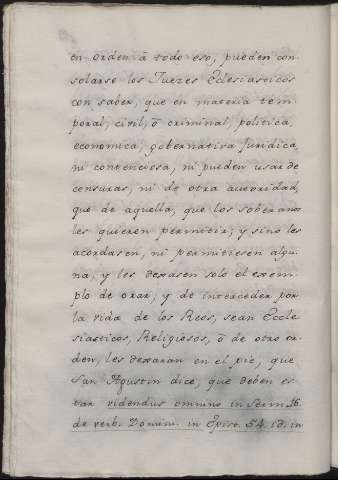 en orden à todo eso, pueden con-
solarse los Juezes Eclesiasticos
con saber, que en materia tem-
poral, civil, ò criminal, politica,
economica, gobernativa juridica,
ni contenciosa, ni pueden usar de
censuras, ni de otra autoridad,
que de aquella, que los soberanos
les quieren permitir; y sino les
acordasen, ni permitiesen algu-
na; y les dexasen solo el exem-
plo de orar, y de interceder por
la vida de los Reos, sean Ecle
siasticos, Religiosos, ò de otro or-
den, les dexaran en el pie, que
San Agustin dice, que deben es-
tar videndus omnino in serm. 16.
de verb. Domin. in Epist. 54. id. in